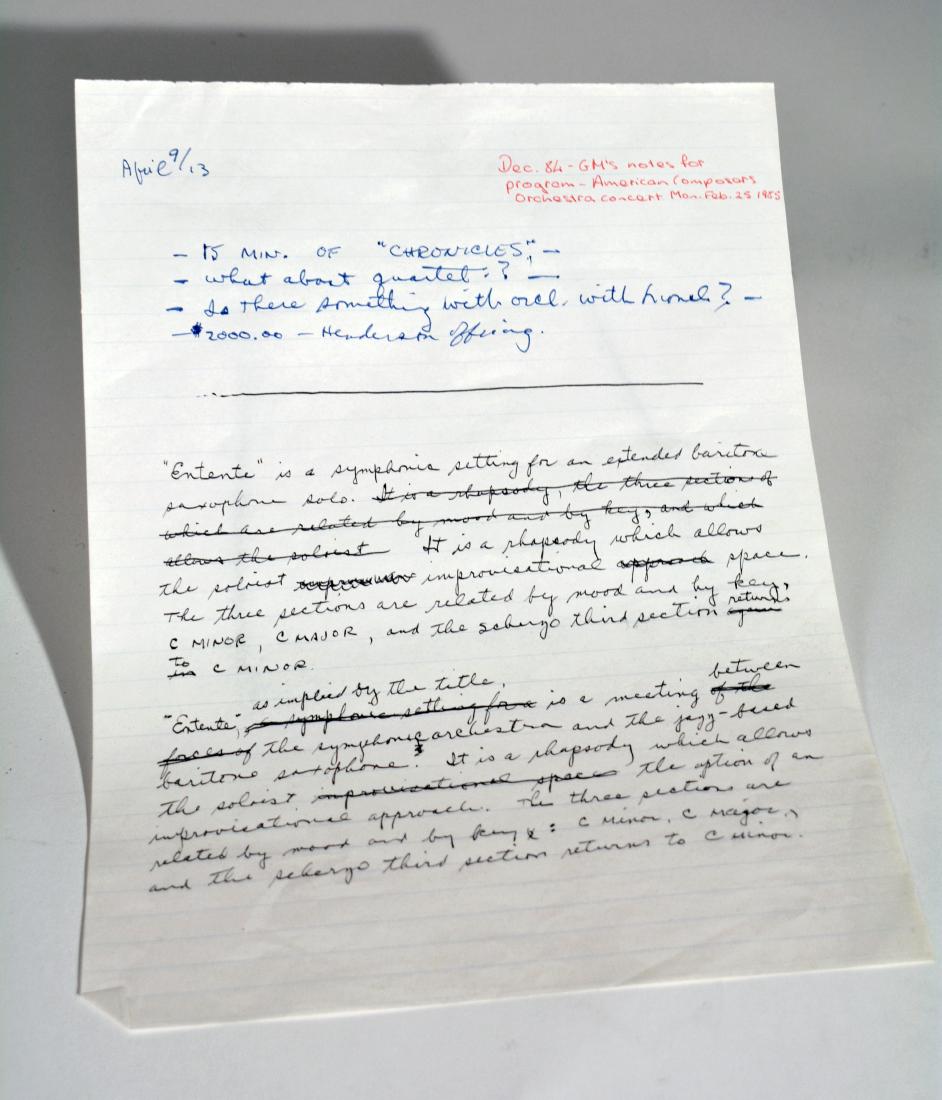 April 9/13
Dec. 84 - GM's notes for
program - American Composers
Orchestra concert Mon. Feb. 25 1985
- 15 MIN. OF "CHRONICLES", -
- What about quartet?? -
- Is there something with orch. with Lionel? -
- $2000.00 - Henderson offering.
"Entente" is a symphonic setting for an extended baritone
saxophone solo. It is a rhapsody, the three sections of
which are related by mood and by key, and which
allows the soloist It is a rhapsody which allows
the soloist improvisational approach space.
The three sections are related by mood and by key,
C MINOR, C MAJOR, and the scherzo third section returns again
to in C MINOR.
"Entente", as implied by the title, a symphonic setting for a is a meeting between of the
forces of the symphonic orchestra and the jazz-based
baritone saxophone. It is a rhapsody which allows
the soloist improvisational space the option of an
improvisational approach. The three sections are
related by mood and by key: C Minor, C Major,
and the scherzo third section returns to C Minor.